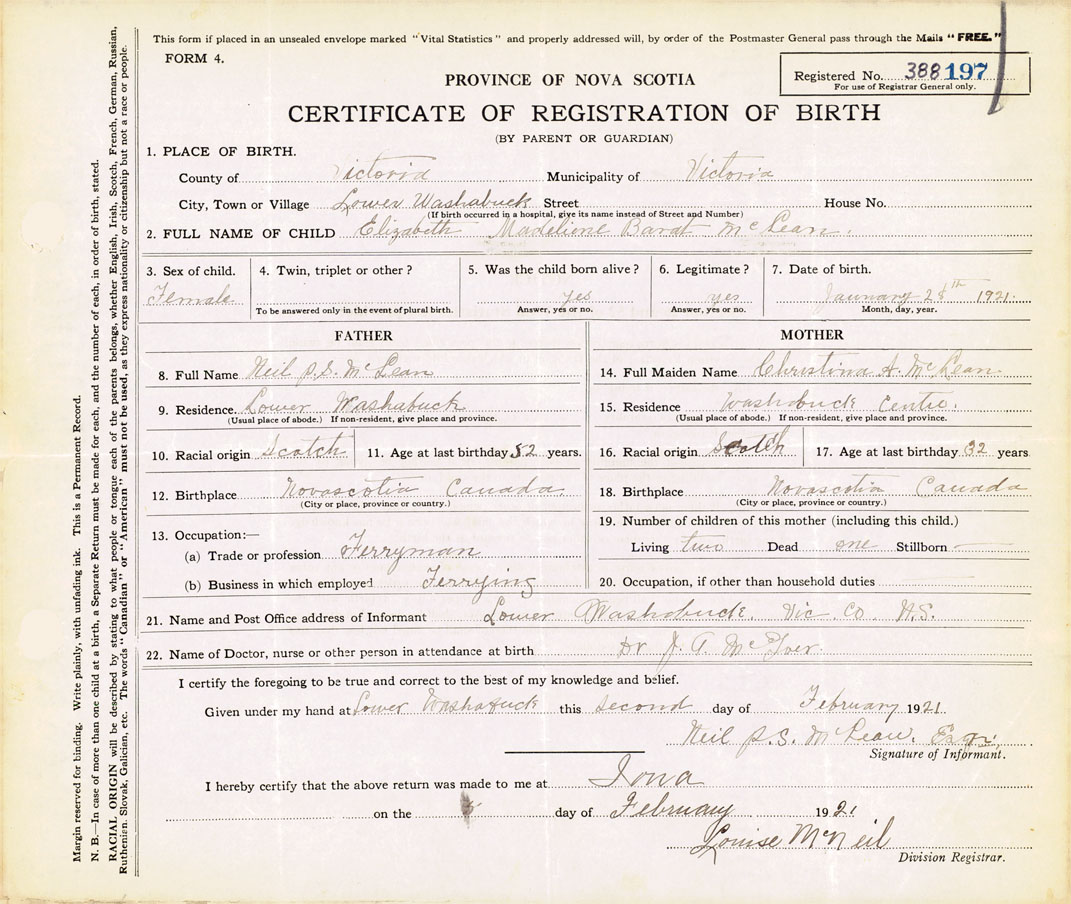 This form if placed in an unsealed envelope marked "Vital Statistics" and properly addressed will, by order of the Postmaster General pass through the Mails "FREE."
FORM 4.
Registered No. 388197
For use of Registrar General only.
PROVINCE OF NOVA SCOTIA
CERTIFICATE OF REGISTRATION OF BIRTH
(BY PARENT OR GUARDIAN)
1. PLACE OF BIRTH.
County of Victoria Municipality of Victoria
City, Town or Village Lower Washabuck Street House No.
(If birth occurred in a hospital, give its name instead of Street and Number)
2. FULL NAME OF CHILD Elizabeth Madeliene Barat McLean.
3. Sex of child. 4. Twin, triplet or other? 5. Was the child born alive? 6. Legitimate? 7. Date of birth.
Female yes yes January 28th 1921.
To be answered only in the event of plural birth. Answer, yes or no. Answer, yes or no. Month, day, year.
FATHER
8. Full Name Neil P.S. McLean
9. Residence. Lower Washabuck
(Usual place of abode.) If non-resident, give place and province.
10. Racial origin Scotch 11. Age at last birthday 52 years.
12. Birthplace Novascotia Canada.
(City or place, province or country.)
13. Occupation:—
(a) Trade or profession Ferryman
(b) Business in which employed Ferrying
MOTHER
14. Full Maiden Name Christina A. McLean
15. Residence Washabuck Centre.
(Usual place of abode.) If non-resident, give place and province.
16. Racial origin Scotch 17. Age at last birthday 32 years
18. Birthplace Novascotia Canada
(City or place, province or country.)
19. Number of children of this mother (including this child.)
Living two Dead one Stillborn —
20. Occupation, if other than household duties
21. Name and Post Office address of Informant Lower Washabuck. Vic. Co. N.S.
22. Name of Doctor, nurse or other person in attendance at birth Dr J. A. McIver.
I certify the foregoing to be true and correct to the best of my knowledge and belief.
Given under my hand at Lower Washabuck this Second day of February 1921.
Neil P.S. McLean.
Signature of Informant.
I hereby certify that the above return was made to me at Iona
on the day of February 1921
Louise McNeil
Division Registrar.
Margin reserved for binding. Write plainly, with unfading ink. This is a Permanent Record.
N. B.—In case of more than one child at a birth, a Separate Return must be made for each, and the number of each, in order of birth, stated.
RACIAL ORIGIN will be described by stating to what people or tongue each of the parents belongs, whether English, Irish, Scotch, French, German, Russian,
Ruthenian, Slovak, Galician, etc. The words "Canadian" or "American" must not be used, as they express nationality or citizenship but not a race or people.